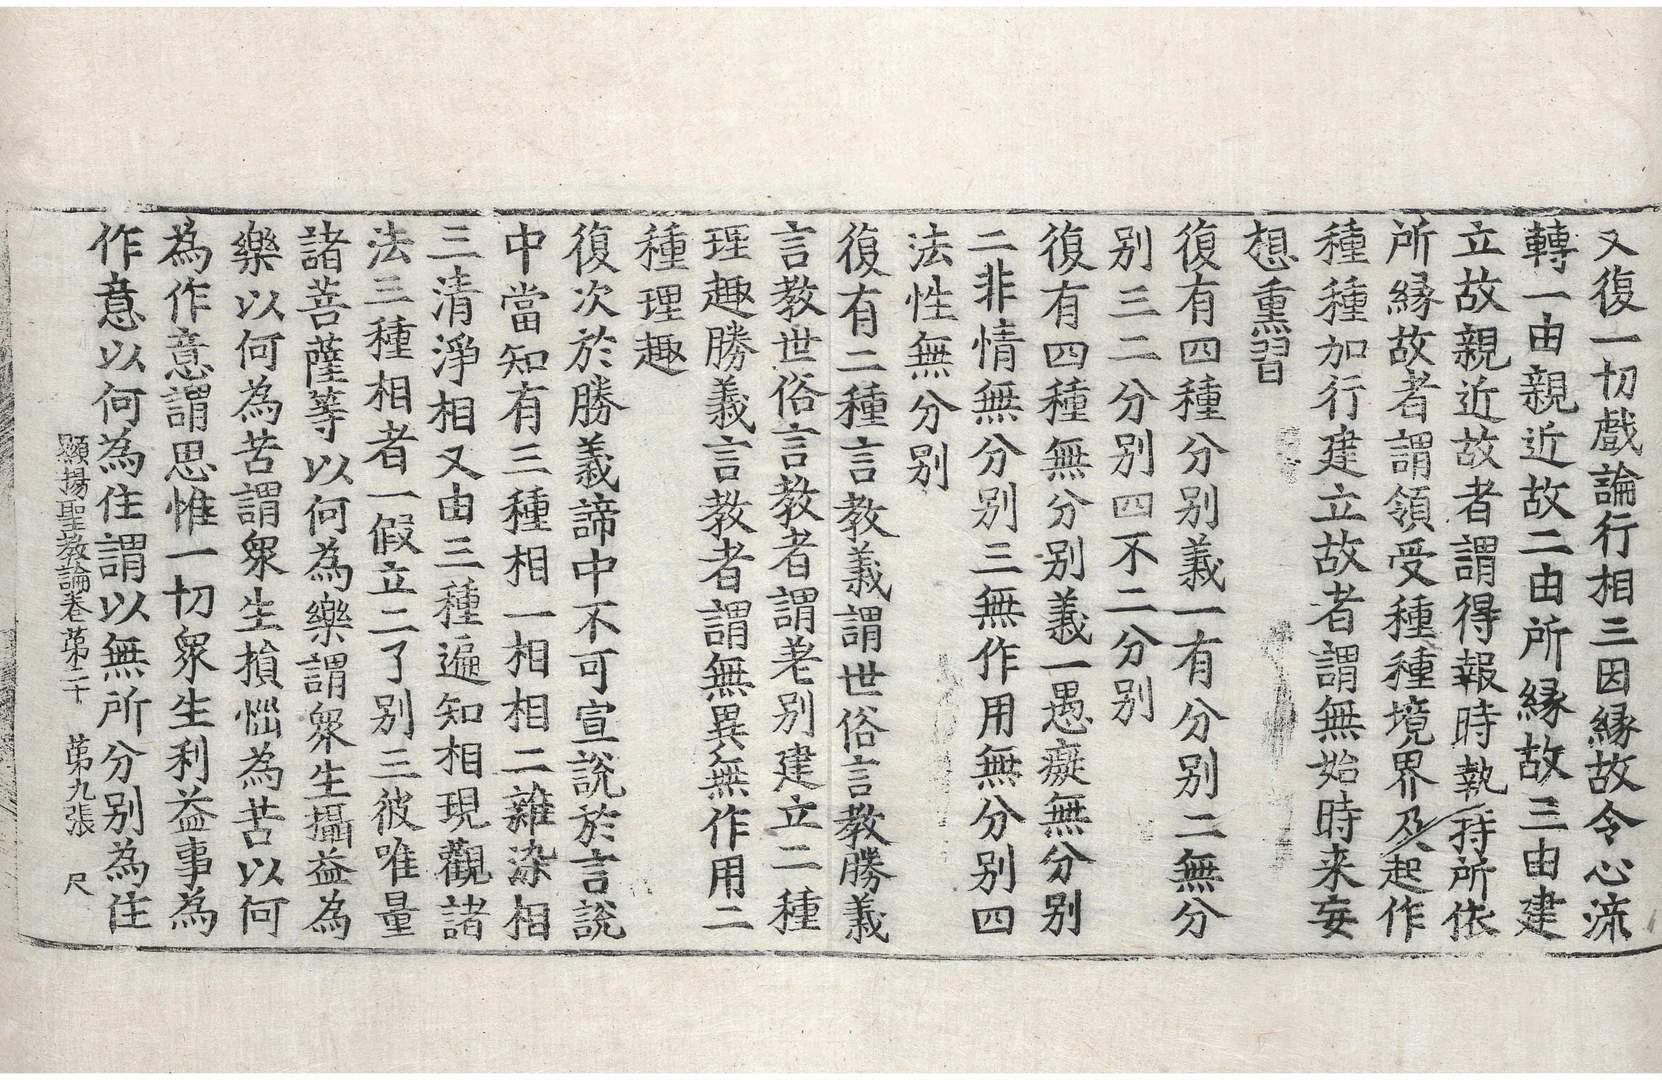 又復一切戲論行相三因縁故令心流
轉一由親近故二由所縁故三由建
立故親近故者謂得報時執持所依
所縁故者謂領受種種境界及起作
種種加行建立故者謂無始時来妄
想熏習
復有四種分别義一有分别二無分
别三二分别四不二分别
復有四種無分别義一愚癡無分别
二非情無分别三無作用無分别四
法性無分别
復有二種言教義謂世俗言教勝義
言教世俗言教者謂差别建立二種
理趣勝義言教者謂無異無作用二
種理趣
復次於勝義諦中不可宣說於言說
中當知有三種相一相相二雜染相
三清淨相又由三種遍知相現觀諸
法三種相者一假立二了别三彼唯量
諸菩薩等以何為樂謂衆生攝益為
樂以何為苦謂衆生損惱為苦以何
為作意謂思惟一切衆生利益事為
作意以何為住謂以無所分别為住
顯揚聖教論卷第二十　第九張　尺